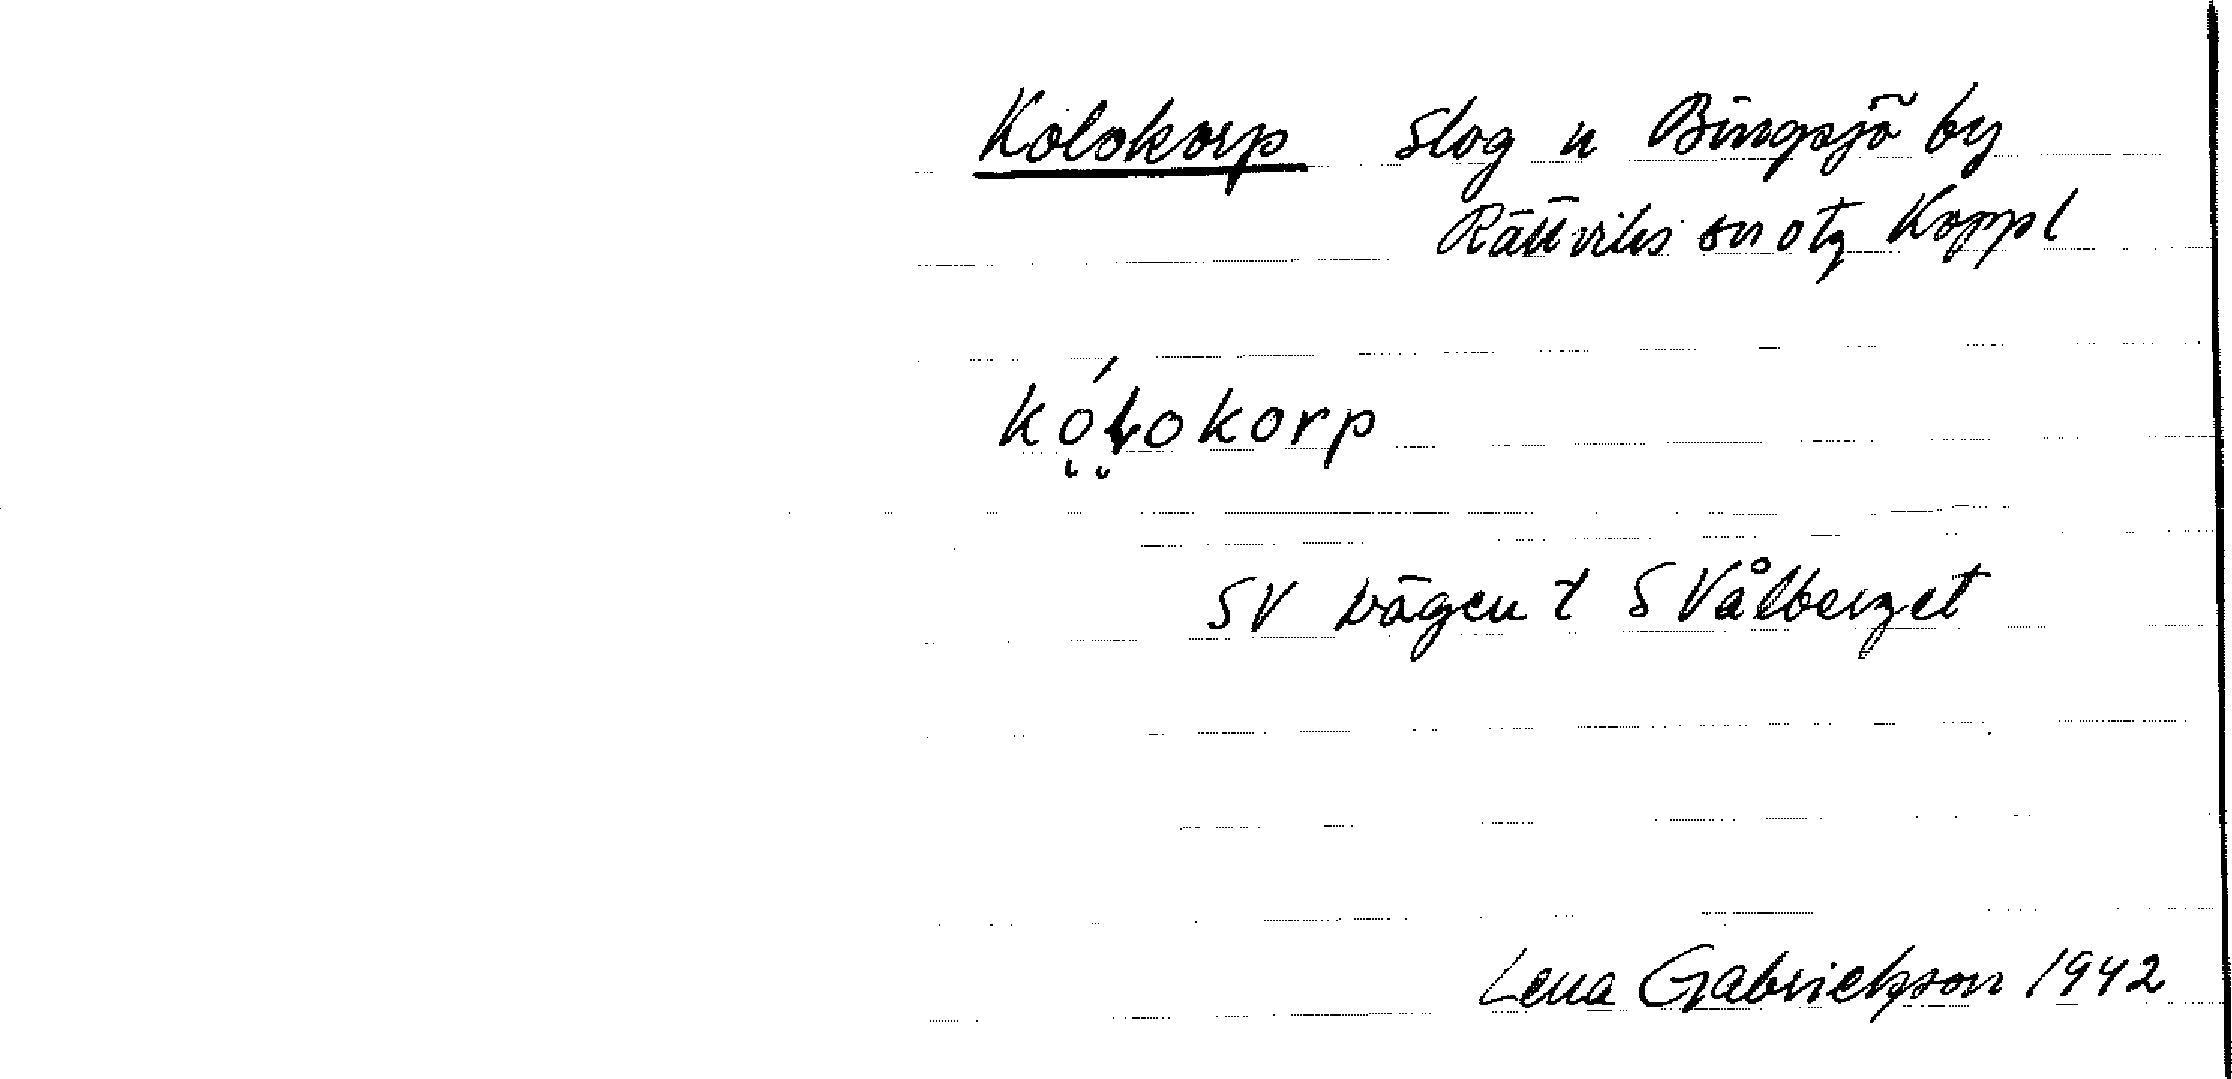 Kolokorp Slog n Bingsjö by
Rättviks sn o tg Koppl
kó̤ḷokorp
SV vägen t S Vålberget
Lena Gabrielsson 1942